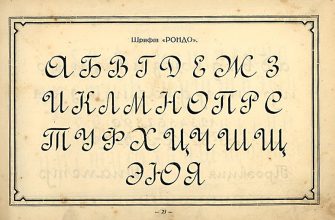 Шрифт «РОНДО».
А Б В Г Д Е Ж З
И К Л М Н О П Р С
Т У Ф Х Ц Ч Ш Щ
Э Ю Я